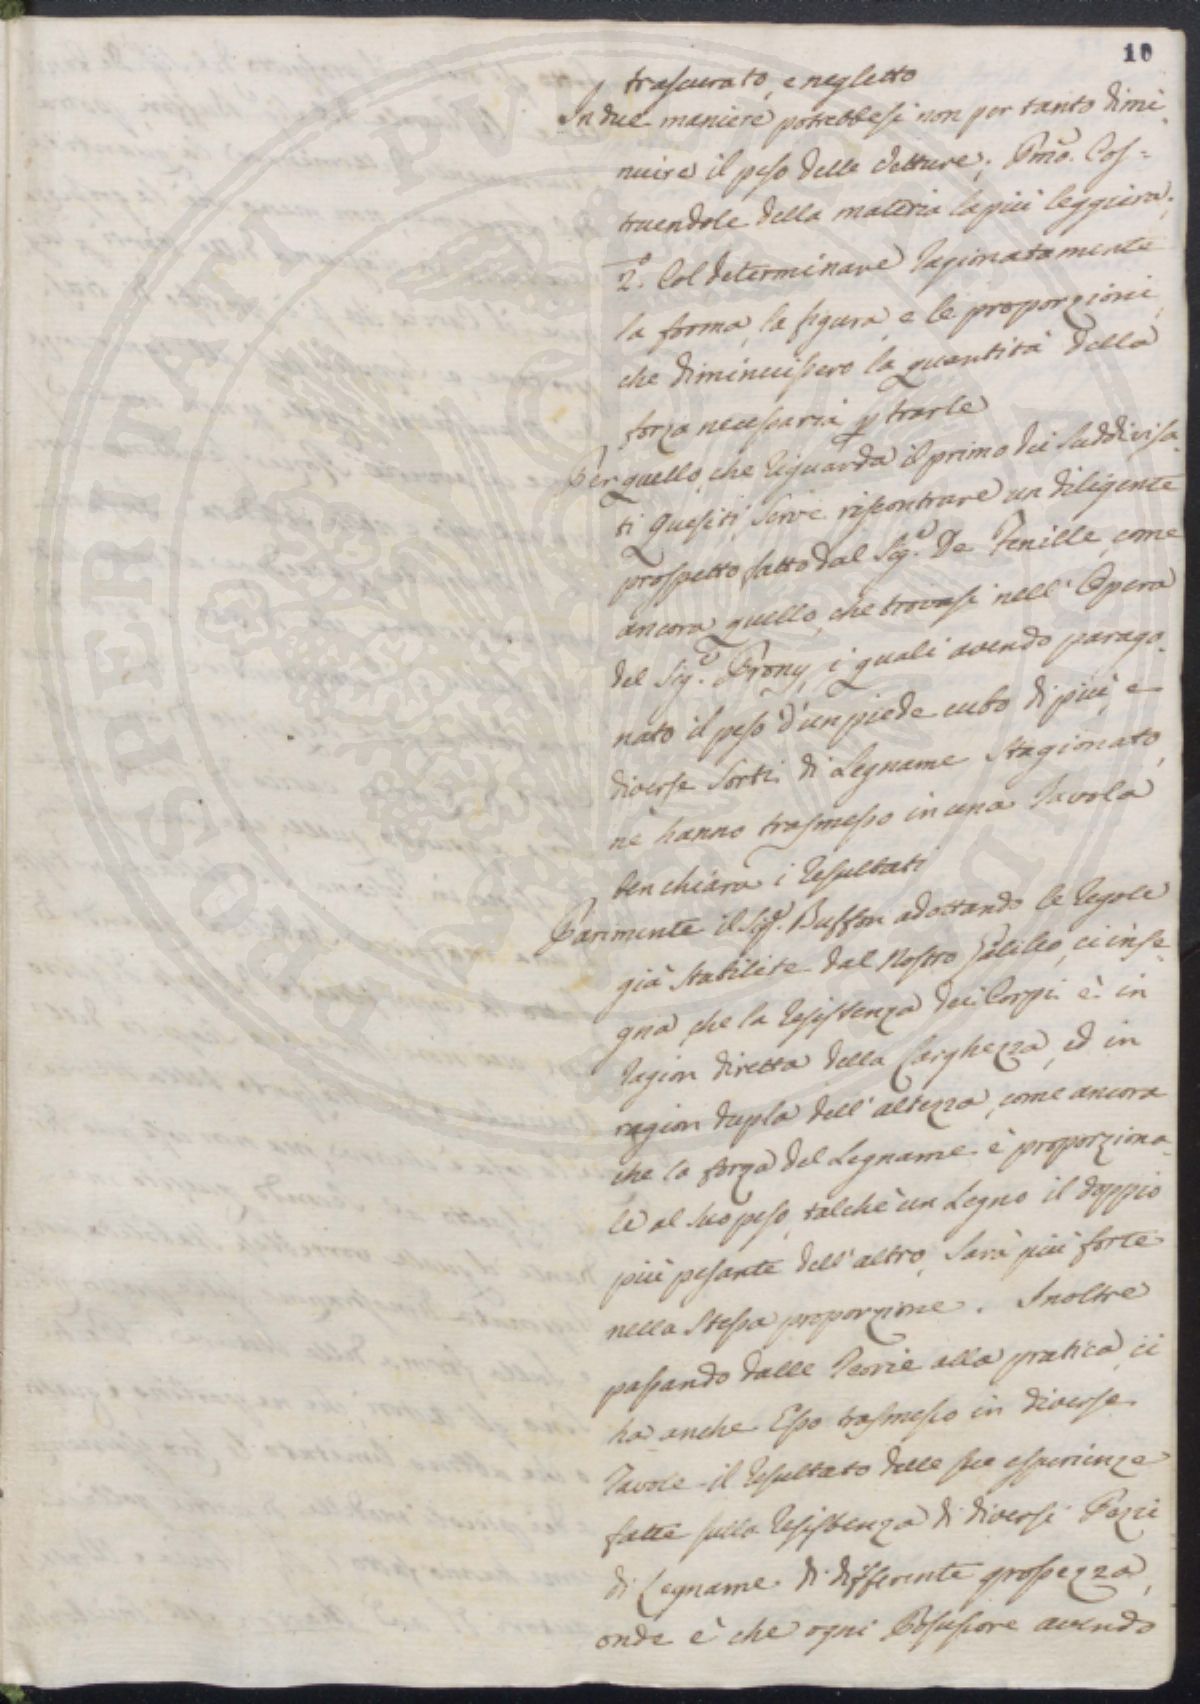 10
trascurato, e negletto
In due maniere potrebbesi non per tanto dimi-
nuire il peso delle Vetture; Pmo. Cos=
truendole della materia la più leggiera;
2.° Col determinare ragionatamente
la forma, la figura, e le proporzioni,
che diminuissero la quantità della
forza necessaria p trarle
Per quello, che riguarda il primo dei suddivisa-
ti Quesiti, serve riscontrare un diligente
prospetto fatto dal Sig.e De Fenille, come
ancora quello, che trovasi nell' Opera
del Sig.e Prony, i quali avendo parago-
nato il peso d'un piede cubo di più, e
diverse sorti di Legname stagionato,
nè hanno trasmesso in una Tavola
ben chiara i resultati
Parimente il Sig.e Buffon adottando le regole
già stabilite dal Nostro Galileo, ci inse-
gna che la resistenza dei Corpi è in
ragion diretta della larghezza, ed in
ragion dupla dell' altezza, come ancora
che la forza del Legname è proporziona-
le al suo peso, talchè un Legno il doppio
più pesante dell' altro, sarà più forte
nella stessa proporzione. Inoltre
passando dalle Teorie alla pratica, ci
ha anche Esso trasmesso in diverse
Tavole il resultato delle sue esperienze
fatte sulla resistenza di diversi Pezzi
di Legname di differente grossezza,
onde è che ogni Possessore avendo
POSPERITATI PVBLICAE